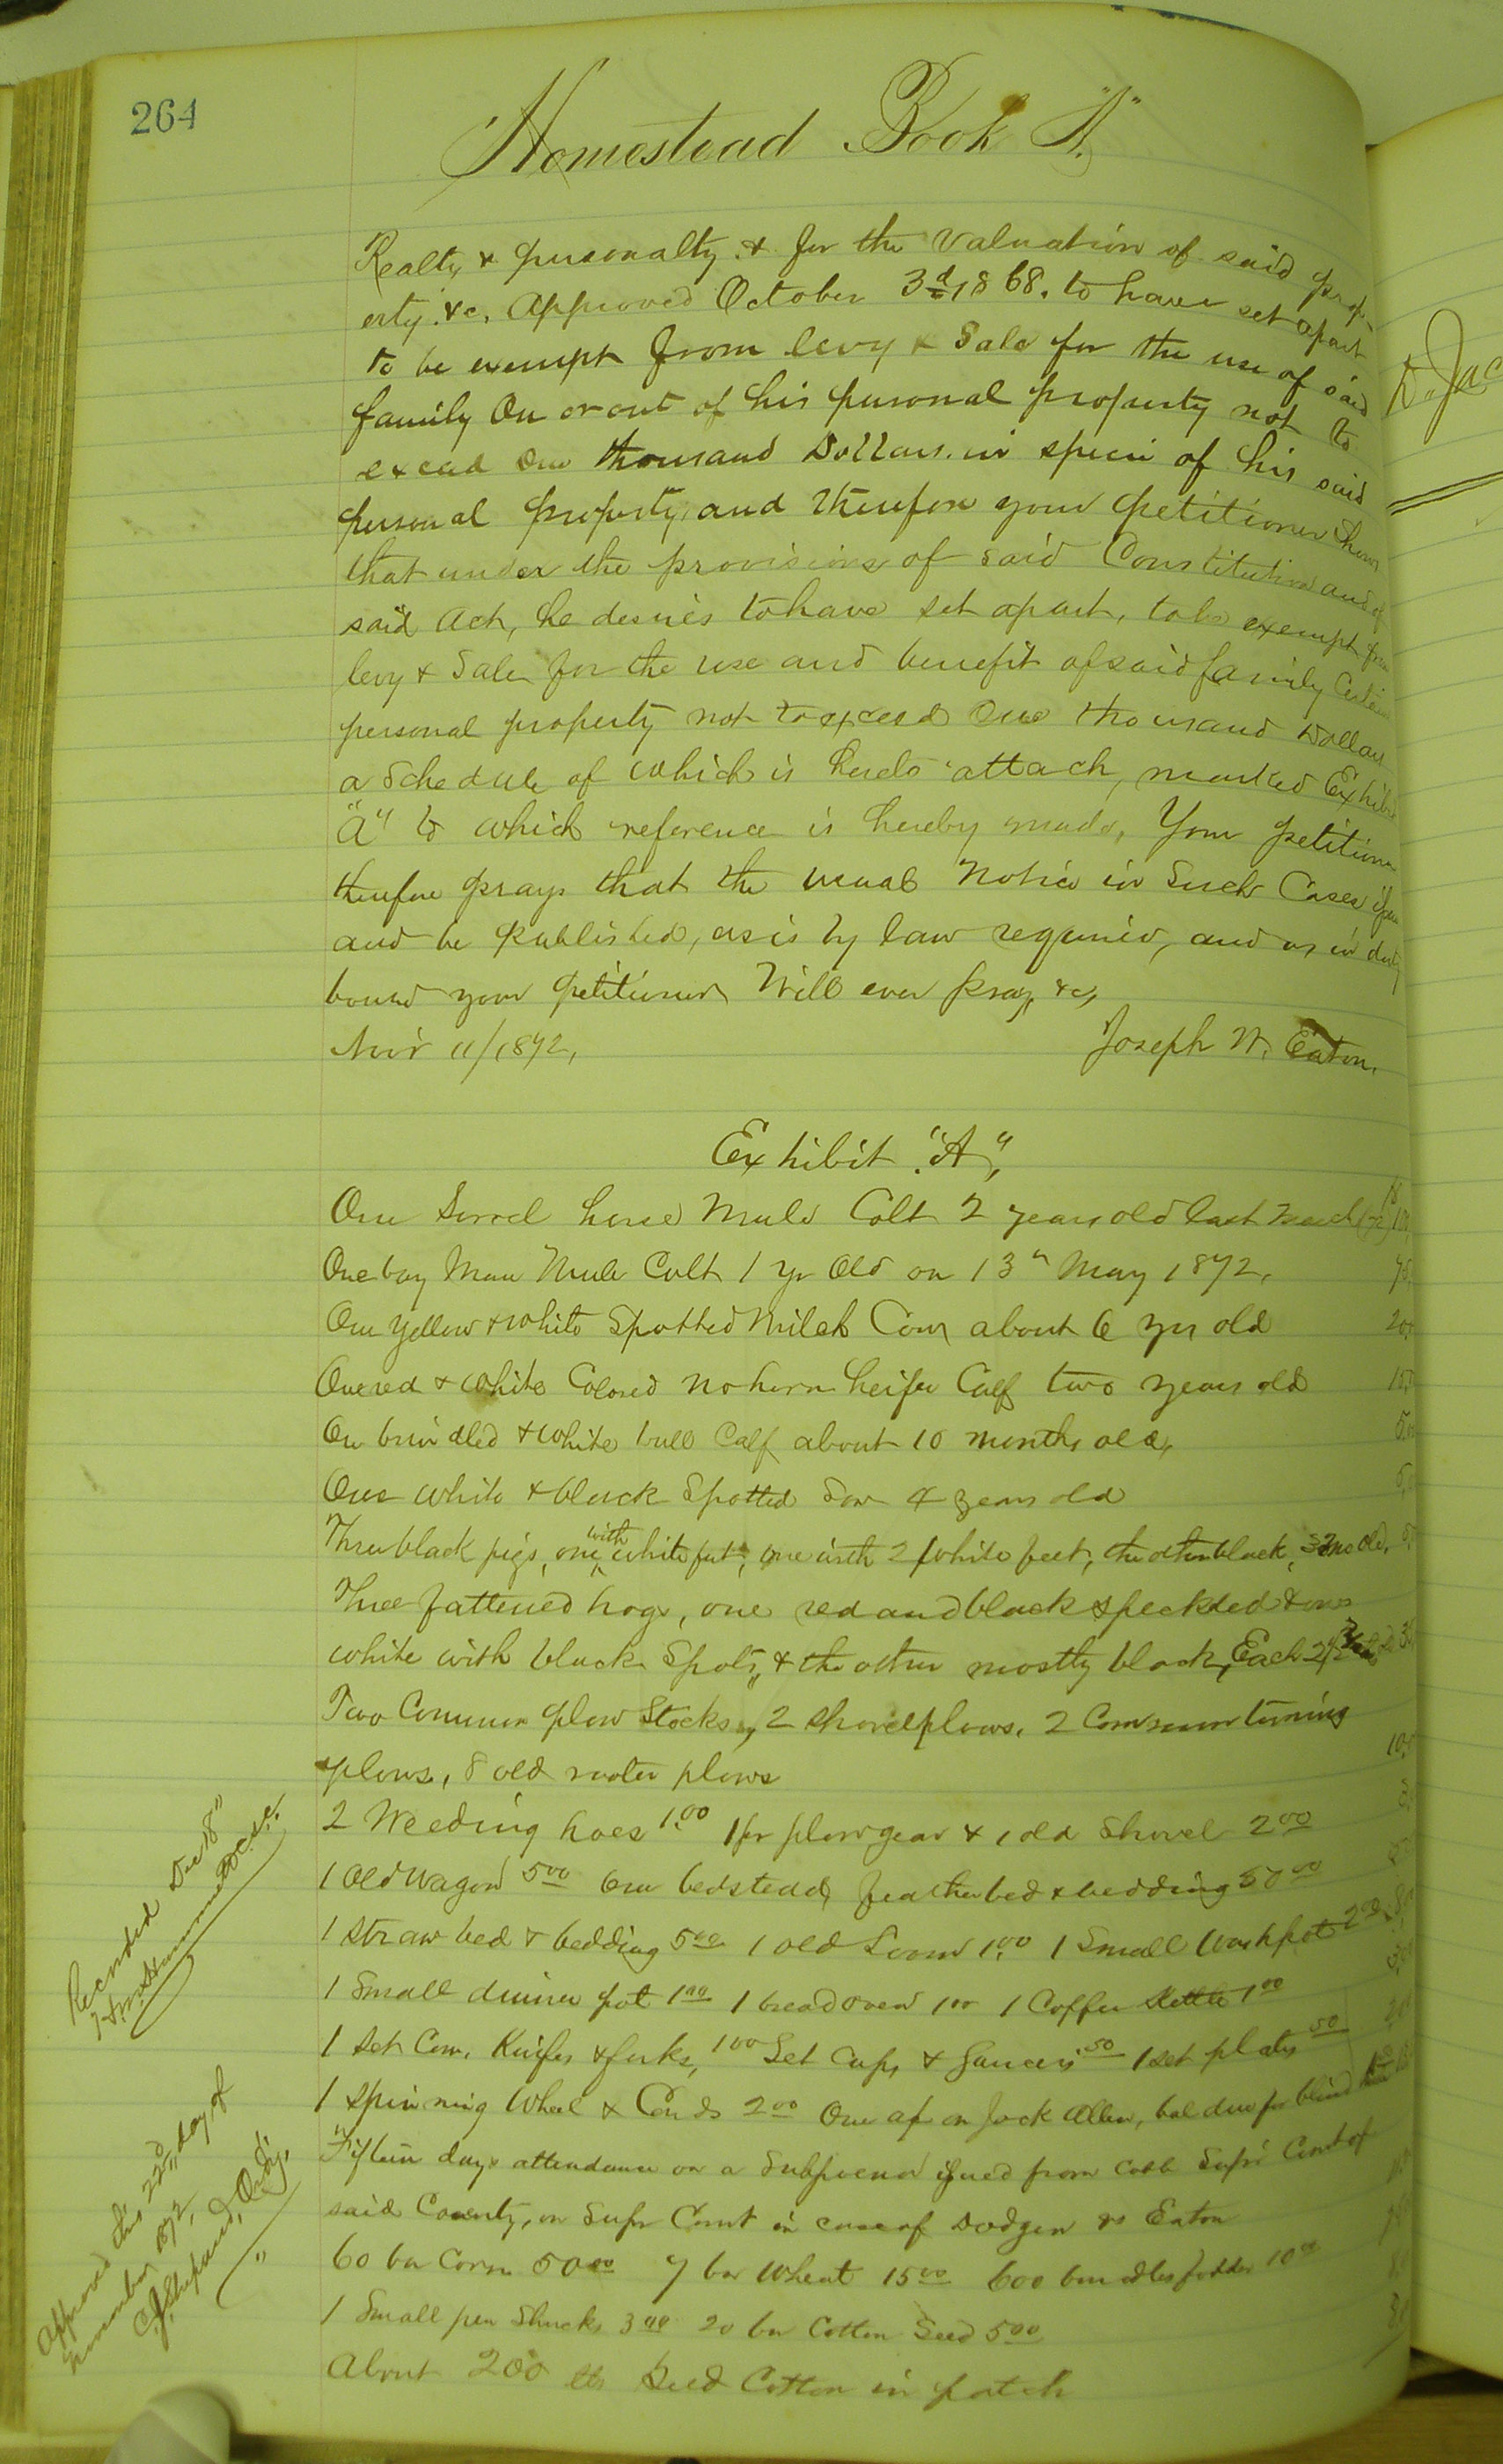 264
Homestead Book "A"
Realty & personalty. & for the Valuation of said prop-
erty. &c. Approved October 3d, 1868. to have set apart
to be exempt from levy & Sale for the use of said
family On or out of his personal property not to
exceed One thousand Dollars. in specie of his said
personal property, and therefore your petitioner shows
that under the provisions of said Constitution and of
said Act, he desires to have set apart, to be exempt from
levy & Sale for the use and benefit of said family Certain
personal property not to exceed One thousand Dollars
a Schedule of which is hereto attach, marked Exhibit
"A" to which reference is hereby made, Your petitioner
therefore prays that the usual Notice in Such Cases
and be published, as is by law required, and as in duty
bound your petitioner Will ever pray, &c,
Nov'r 11/1872, Joseph W. Eaton.
Exhibit "A",
One Sorrel horse Mule Colt 2 years old last March
One bay Mare Mule Colt 1 yr Old on 13" May 1872, 75
One Yellow & white Spotted Milch Cow about 6 yrs old 20
One red & white Colored no horn heifer Calf two years old
One brindled & white bull Calf about 10 months old,
One white & black Spotted Sow 4 years old
Three black pigs, one with white feet, one with 2 white feet, the other black,
Three fattened hogs, one red and black speckled & one
white with black Spots, & the other mostly black, Each
Two Common plow Stocks, 2 shovel plows, 2 Common turning
plows, 8 old rooter plows 10
2 Weeding hoes 1.00 1 pr plow gear & 1 old Shovel 2.00
1 Old Wagon 5.00 One bedstead, feather bed & bedding 50.00
1 Straw bed & bedding 5.00 1 old Loom 1.00 1 Small Wash pot 2.00
1 Small dinner pot 1.00 1 bread oven 1.00 1 Coffee Kettle 1.00
1 set Com. Knifes & forks, 1.00 Set Cups & Saucers .50 1 set plates .50
1 Spinning Wheel & Cards 2.00 One af on Jack Allen, bal due for blind
Fifteen days attendance on a Subpoena issued from Cobb Supr Court of
said County, in Supr Court in case of Dodgen vs Eaton
60 bu Corn 50.00 7 bu Wheat 15.00 600 bundles fodder 10.00
1 Small pen Shucks 3.00 20 bu Cotton Seed 5.00
About 200 lbs Seed Cotton in patch
Recorded Dec 18"
Approved this 22nd day of
November 1872,
Ordy.